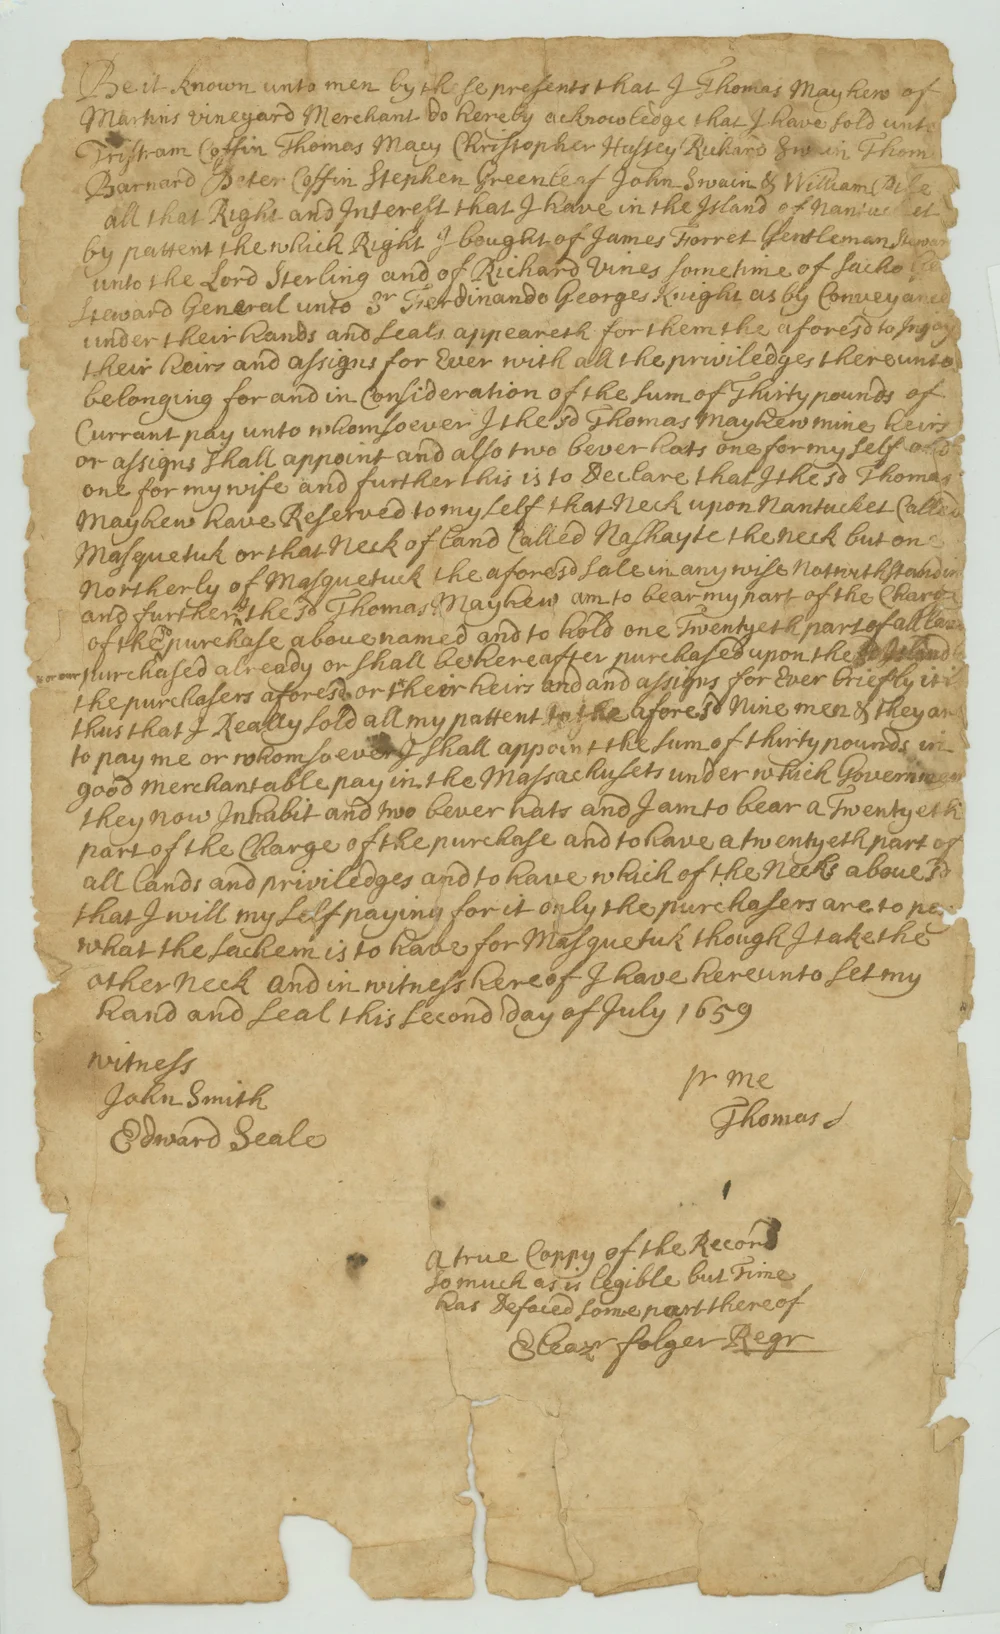 Be it known unto men by these presents that I Thomas Mayhew of
Martins vineyard Merchant do hereby acknowledge that I have sold unto
Tristram Coffin Thomas Macy Christopher Hussey Richard Swain Thom
Barnard Peter Coffin Stephen Greenleaf John Swain & William Pike
all that Right and Interest that I have in the Island of Nantucket
by pattent the which Right I bought of James Forret Gentleman Steward
unto the Lord Sterling and of Richard Vines sometime of Sacho Ge
Steward General unto Sr Ferdinando Georges Knight as by Conveyance
under their hands and Seals appeareth for them the aforesd to Injoy
their heirs and assigns for Ever with all the priviledges thereunto
belonging for and in Consideration of the sum of Thirty pounds of
Currant pay unto whomsoever I the sd Thomas Mayhew mine heirs
or assigns shall appoint and also two bever hats one for my self and
one for my wife and further this is to Declare that I the sd Thomas
Mayhew have Reserved to my self that Neck upon Nantucket Called
Masquetuk or that Neck of Land Called Nashayte the neck but one
Northerly of Masquetuck the aforesd Sale in any wise Notwithstandin
and further I the sd Thomas Mayhew am to bear my part of the Charge
of the sd purchase above named and to hold one Twentyeth part of all Lan
purchased already or shall be hereafter purchased upon the sd Island
the purchasers aforesd or their heirs and and assigns for Ever briefly it i
thus that I Really sold all my pattent to the aforesd Nine men & they ar
to pay me or whomsoever I shall appoint the sum of thirty pounds in
good Merchantable pay in the Massachusets under which Governmen
they now Inhabit and two bever hats and I am to bear a Twentyeth
part of the Charge of the purchase and to have a twentyeth part of
all Lands and priviledges and to have which of the Necks above sd
that I will my self paying for it only the purchasers are to pay
what the Sachem is to have for Masquetuk though I take the
other Neck and in witness hereof I have hereunto Set my
hand and Seal this Second day of July 1659
witness
John Smith
Edward Seale
pr me
Thomas
a true Coppy of the Record
so much as is legible but Time
has Defaced some part thereof
Eleazr folger Regr